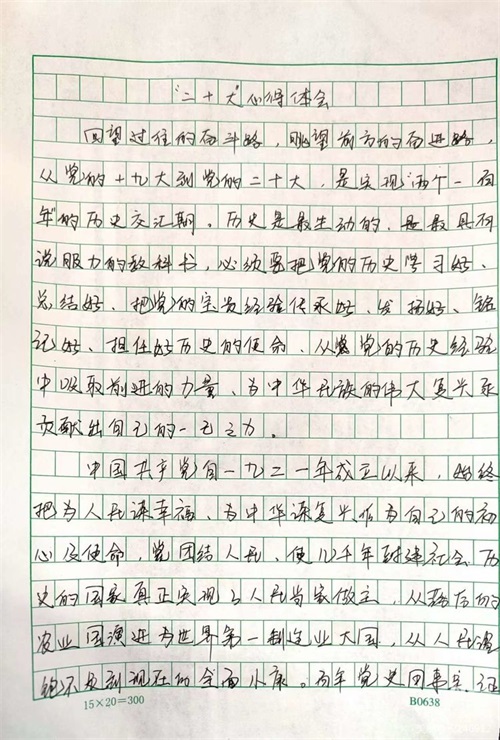 “二十大”心得体会
回望过往的奋斗路，眺望前方的奋进路，
从党的十九大到党的二十大，是实现“两个一百
年”的历史交汇期。历史是最生动的、是最具有
说服力的教科书，必须要把党的历史学习好、
总结好、把党的宝贵经验传承好、发扬好、铭
记好、担任好历史的使命，从党的历史经验
中吸取前进的力量、为中华民族的伟大复兴
贡献出自己的一己之力。
中国共产党自一九二一年成立以来，始终
把为人民谋幸福、为中华谋复兴作为自己的初
心及使命，党团结人民、使几千年封建社会历
史的国家真正实现了人民当家做主，从落后的
农业国演进为世界第一制造业大国，从人民温
饱不足到现在的全面小康。百年党史用事实证
15×20=300 B0638